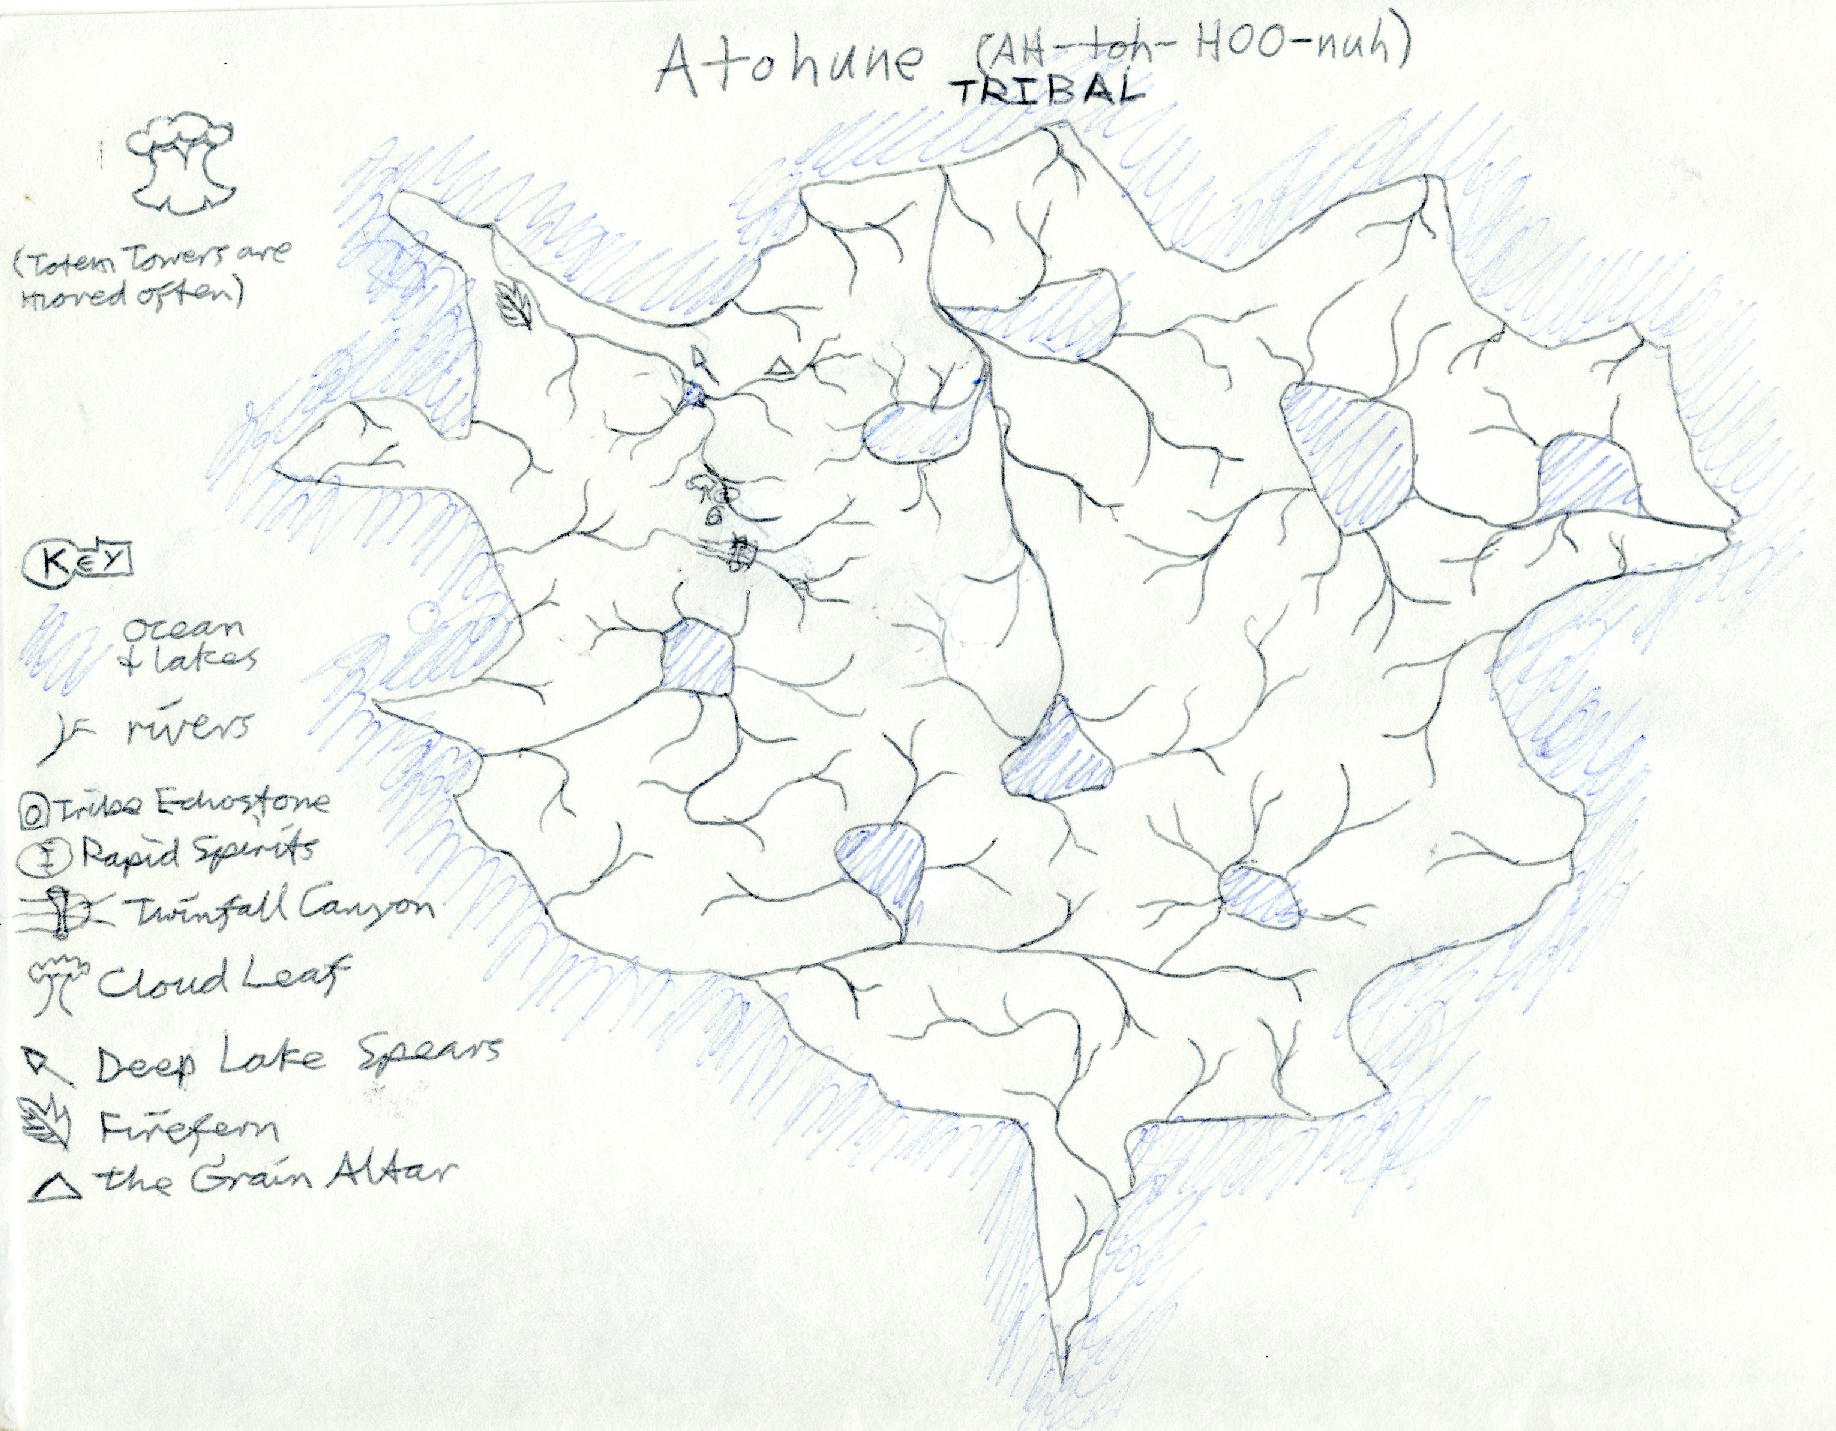 Atohune (AH-toh-HOO-nuh)
TRIBAL
(Totem Towers are
moved often)
KEY
ocean
+ lakes
rivers
Tribe Echostone
Rapid Spirits
Twinfall Canyon
Cloud Leaf
Deep Lake Spears
Firefern
the Grain Altar